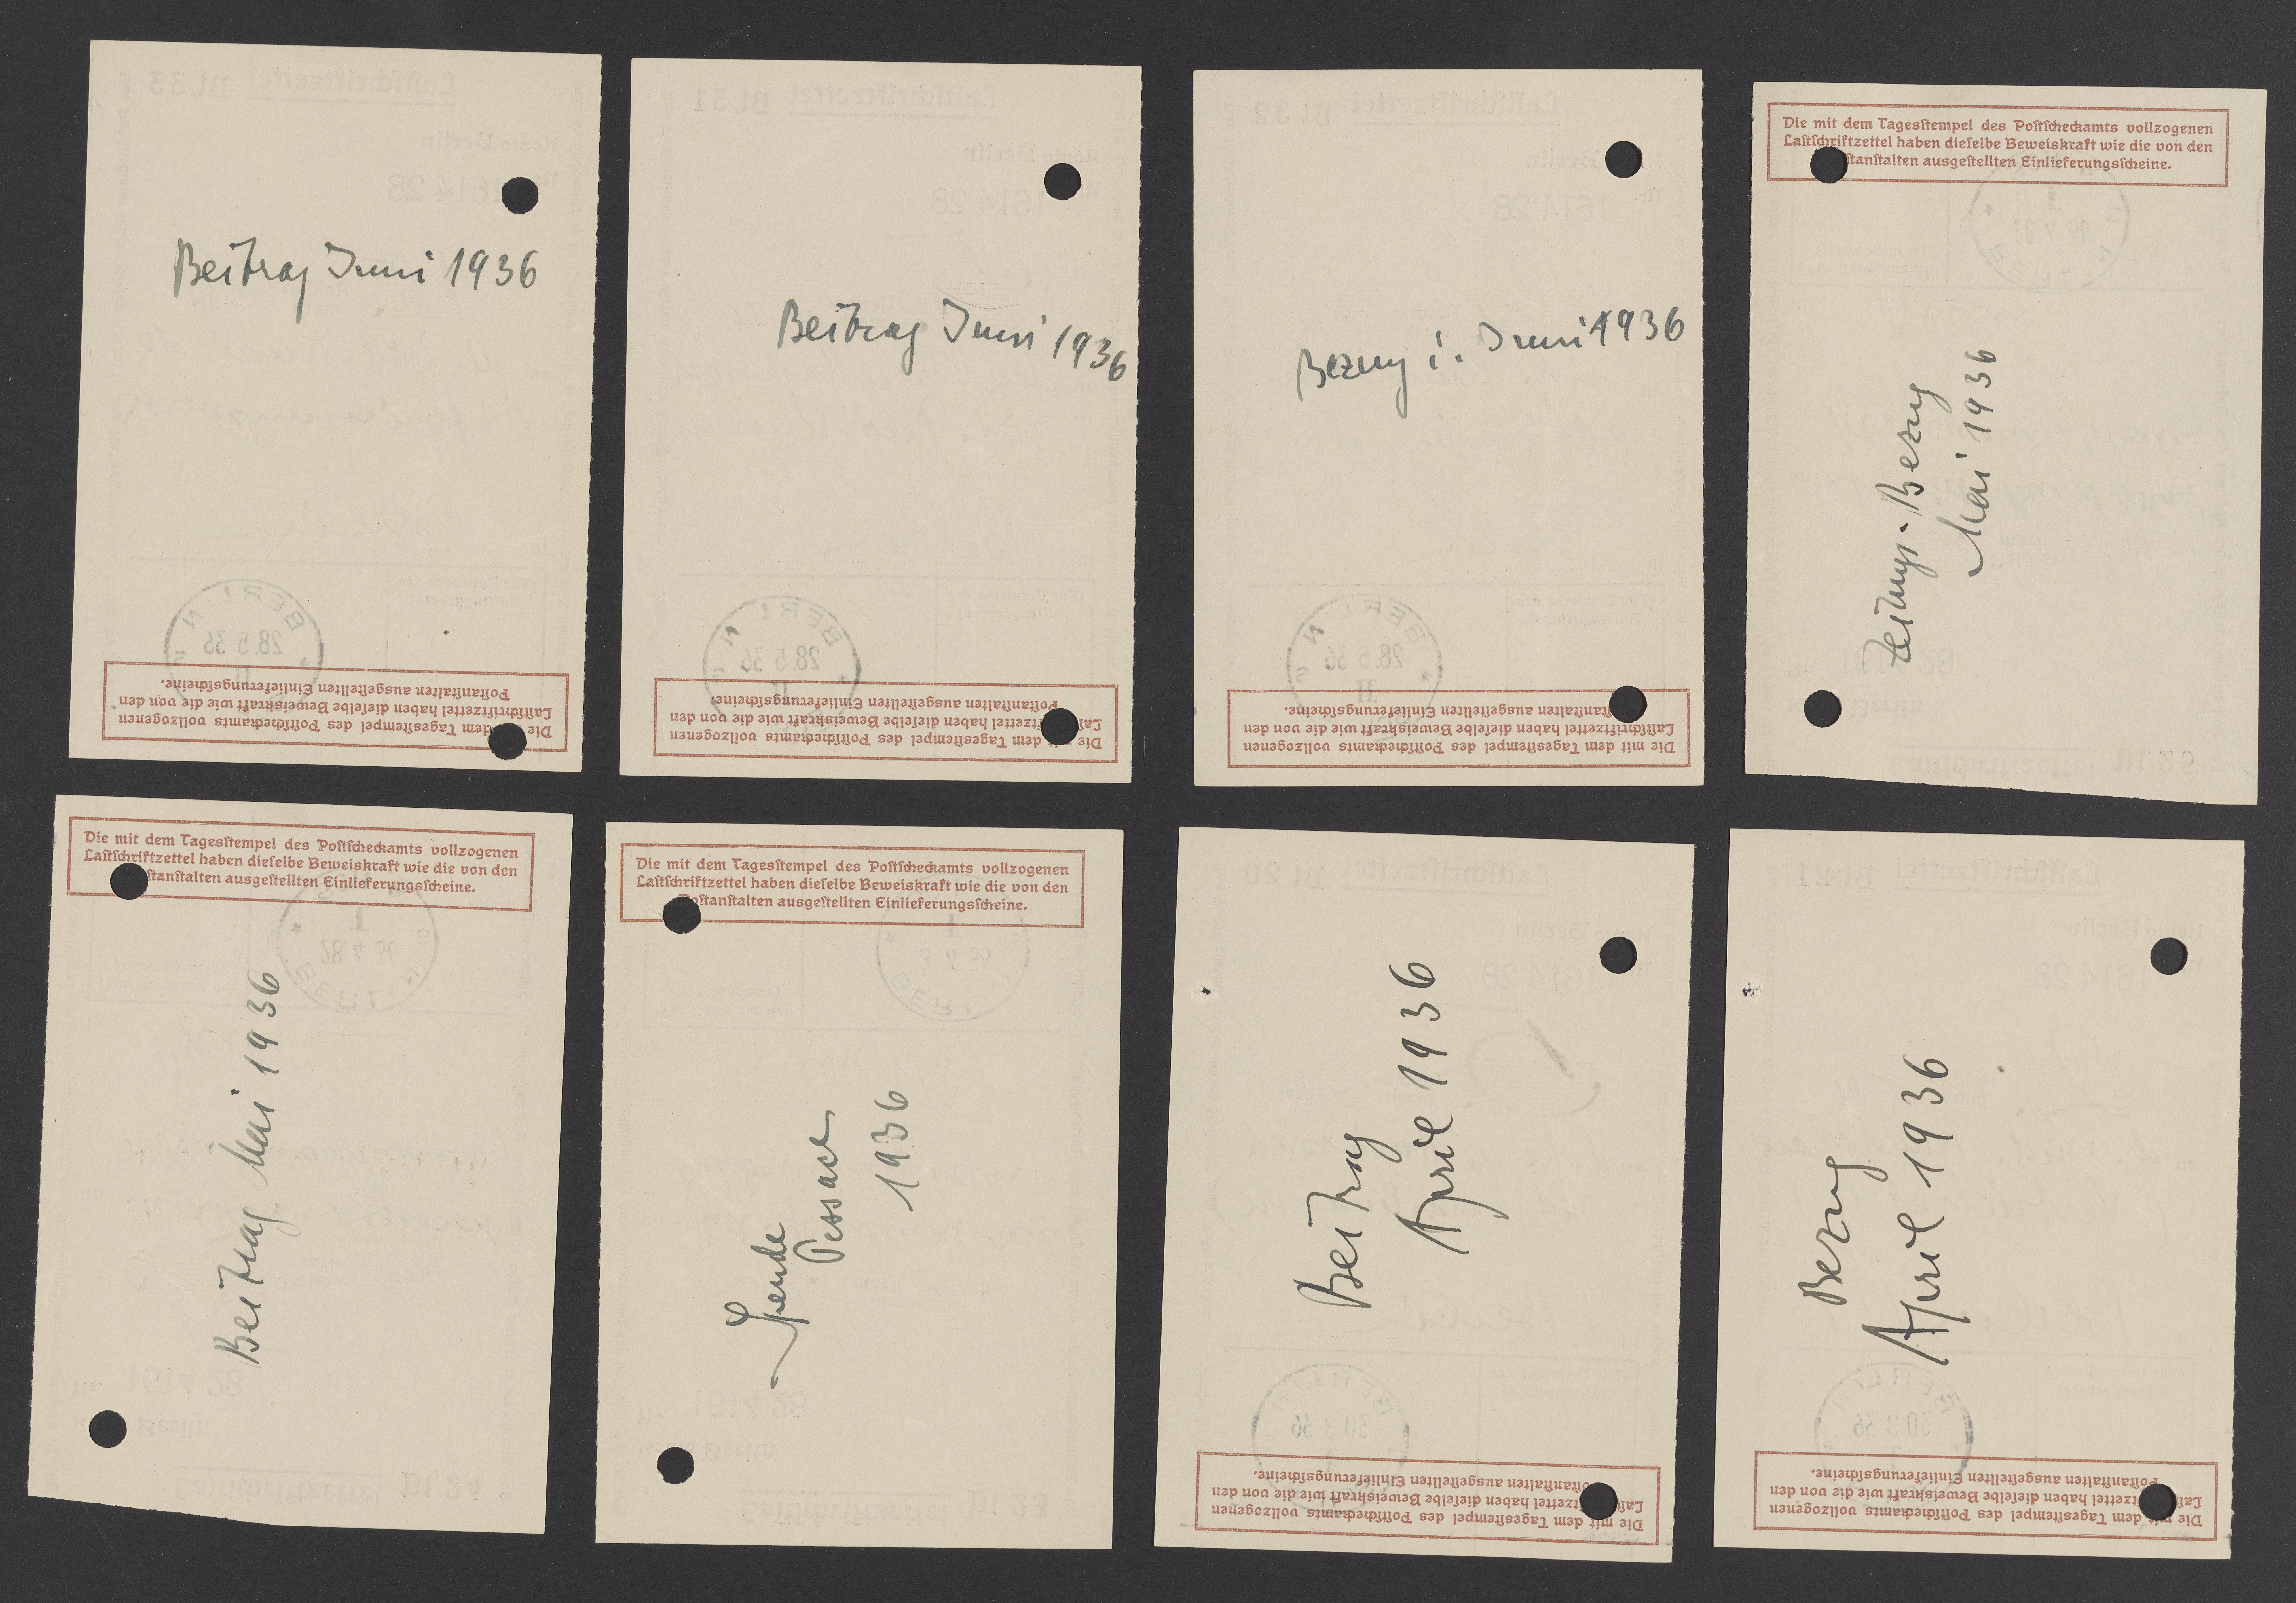 Beitrag Juni 1936
BERLIN
28.5.36
Die dem Tagesstempel des Postscheckamts vollzogenen
Lastschriftzettel haben dieselbe Beweiskraft wie die von den
Postanstalten ausgestellten Einlieferungsscheine.
Beitrag Juni 1936
BERLIN
28.5.36
Die dem Tagesstempel des Postscheckamts vollzogenen
haben dieselbe Beweiskraft wie die von den
Postanstalten ausgestellten Einlieferungsscheine.
Bezug i. Juni 1936
BERLIN
28.5.36
Die mit dem Tagesstempel des Postscheckamts vollzogenen
Lastschriftzettel haben dieselbe Beweiskraft wie die von den
ausgestellten Einlieferungsscheine.
Die mit dem Tagesstempel des Postscheckamts vollzogenen
Lastschriftzettel haben dieselbe Beweiskraft wie die von den
stanstalten ausgestellten Einlieferungsscheine.
Zeitungs-Bezug
Mai 1936
Die mit dem Tagesstempel des Postscheckamts vollzogenen
Lastschriftzettel haben dieselbe Beweiskraft wie die von den
stanstalten ausgestellten Einlieferungsscheine.
Beitrag Mai 1936
Die mit dem Tagesstempel des Postscheckamts vollzogenen
Lastschriftzettel haben dieselbe Beweiskraft wie die von den
Postanstalten ausgestellten Einlieferungsscheine.
Spende
Pessach
1936
Beitrag
April 1936
Die mit dem Tagesstempel des Postscheckamts vollzogenen
haben dieselbe Beweiskraft wie die von den
ausgestellten Einlieferungsscheine.
Bezug
April 1936
Die mit dem Tagesstempel des Postscheckamts vollzogenen
haben dieselbe Beweiskraft wie die von den
Postanstalten ausgestellten Einlieferungsscheine.